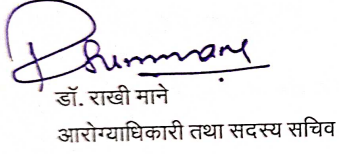 डॉ. राखी माने
आरोग्याधिकारी तथा सदस्य सचिव